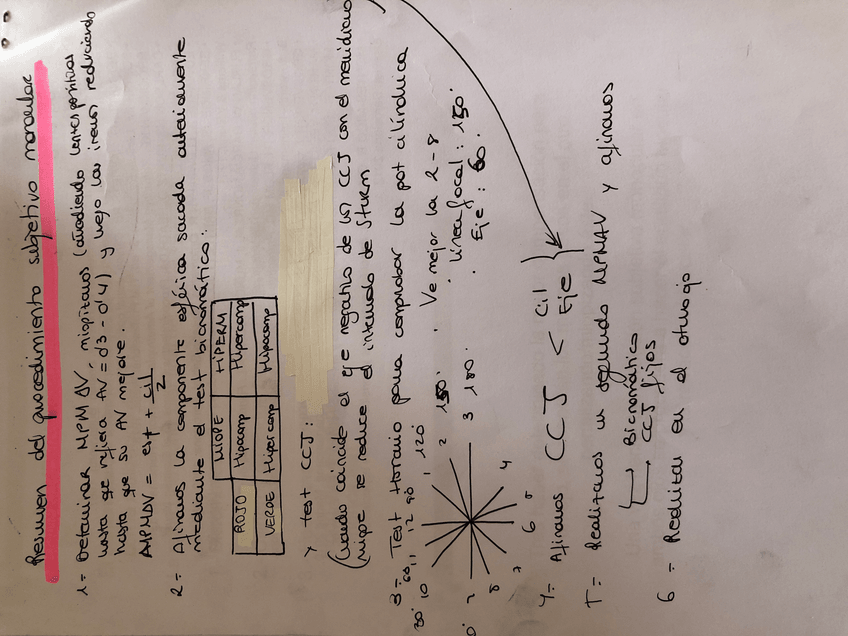 Resumen del procedimiento subjetivo monocular
1= Determinar MPMAV, miopizamos (añadiendo lentes positivas
hasta que refiera AV = 0'3 - 0'4) y luego las iremos reduciendo
hasta que su AV mejore.
AMPMAV = esf + cil/2
2= Afinamos la componente esférica sacada anteriormente
mediante el test bicromático:
MIOPE HIPERM
ROJO Hipocomp Hipercomp
VERDE Hipercomp Hipocomp
> test CCJ:
Cuando coincide el eje negativo de los CCJ con el meridiano
miope se reduce el intervalo de Sturm
3= Test Horario para comprobar la pot cilíndrica
Ve mejor la 2-8
línea focal: 150°
Eje: 60°
30° 60 90 120 150 180
10 11 12 1 2 3 4 5 6 7 8
4= Afinamos CCJ < Cil
Eje
5= Realizamos un segundo MPMAV y afinamos
Bicromático
CCJ fijos
6 = Realizar en el otro ojo